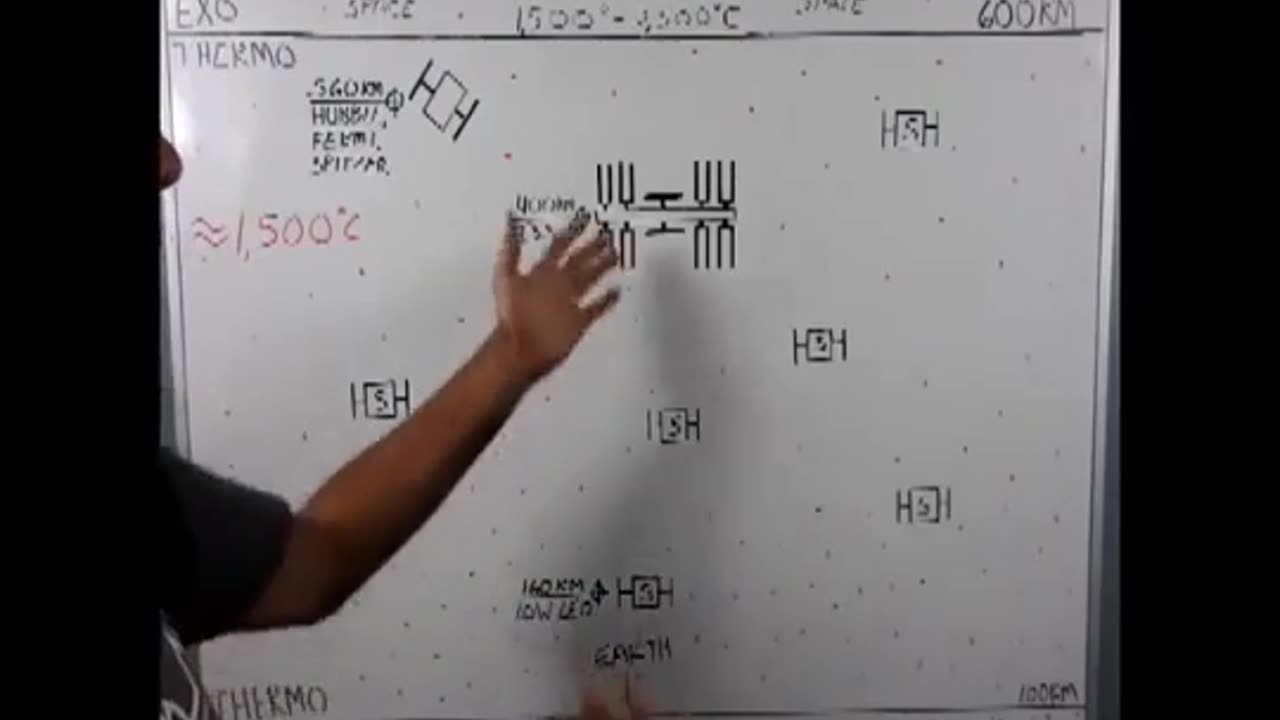 EXO SPACE 1,500° - 3,500°C SPACE 600KM
THERMO
560KM
HUBBLE,
FERMI,
SPITZAR.
≈1,500°C
400KM
S
S
S
S
S
160KM
LOW LEO
S
EARTH
THERMO 100KM